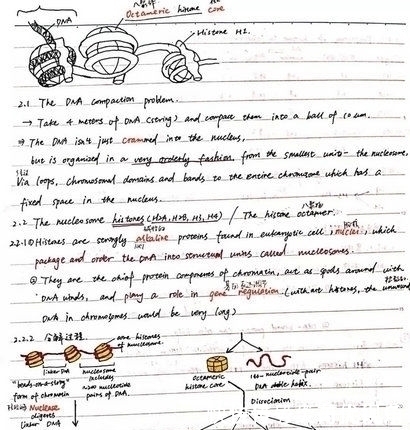 八聚体
DNA
Octameric histone core
Histone H1.
2.1 The DNA compaction problem.
→ Take 4 meters of DNA (string) and compact them into a ball of 10 um.
⇒ The DNA isn't just crammed into the nucleus,
but is organized in a very orderly fashion, from the smallest unit - the nucleosome,
Via loops, chromosomal domains and bands to the entire chromosome which has a
fixed space in the nucleus.
八聚体
2.2 The nucleosome histones (H2A, H2B, H3, H4) / The histone octamer.
2.2.1 ① Histones are strongly alkaline proteins found in eukaryotic cell nuclei, which
package and order the DNA into structural units called nucleosomes.
② They are the chief protein components of chromatin, act as spools around with
DNA winds, and play a role in gene regulation (without histones, the unwound
DNA in chromosomes would be very long)
2.2.2
core histones
of nucleosome.
linker DNA
nucleosome
includes
nucleotide
pairs of DNA.
"beads-on-a-string"
form of chromatin
Nuclease
digests
linker DNA
octameric
histone core
nucleotide-pair
DNA double helix.
Dissociation